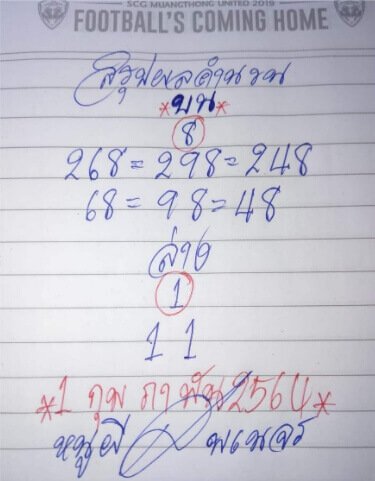 SCG MUANGTHONG UNITED 2019
FOOTBALL'S COMING HOME
สรุปผลคำนวน
*บน*
8
268=298=248
68=98=48
ล่าง
1
11
*1 กุมภาพันธ์ 2564*